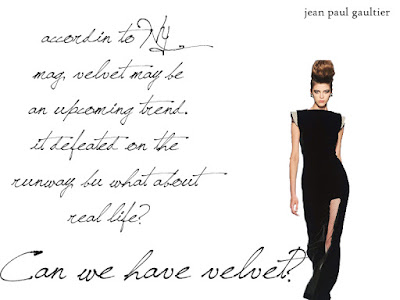 jean paul gaultier
accordin to NY
mag, velvet may be
an upcoming trend.
it defeated on the
runway, bu what about
real life?
Can we have velvet?